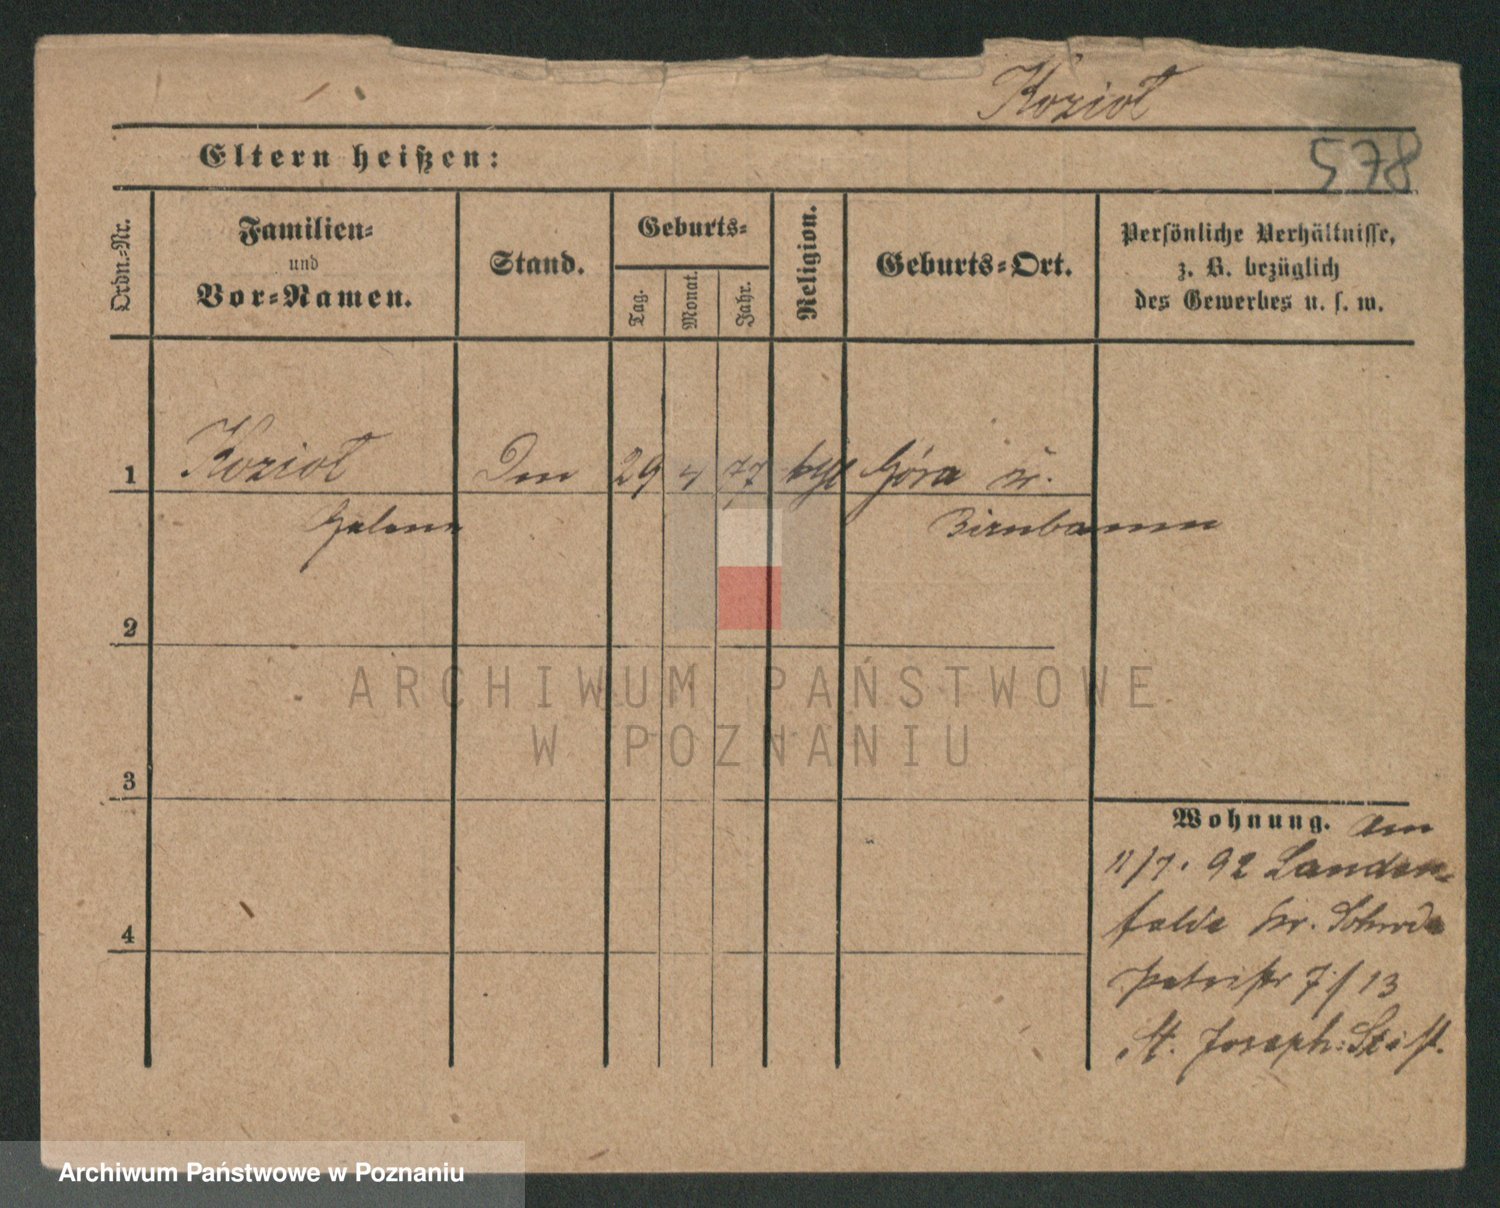 Kozioł
578
Eltern heißen:
Ordn.-Nr.
Familien-
und
Vor-Namen.
Stand.
Geburts-
Tag.
Monat.
Jahr.
Religion.
Geburts-Ort.
Persönliche Verhältnisse,
z. B. bezüglich
des Gewerbes u. s. w.
1 Kozioł 29 4 77 kth Góra
Birnbaum
2
ARCHIWUM PAŃSTWOWE
W POZNANIU
3
4
Wohnung. Am
11/7. 92 Landen-
felde Kr. Schroda
Petristr 7/13
St. Joseph-Stift.
Archiwum Państwowe w Poznaniu